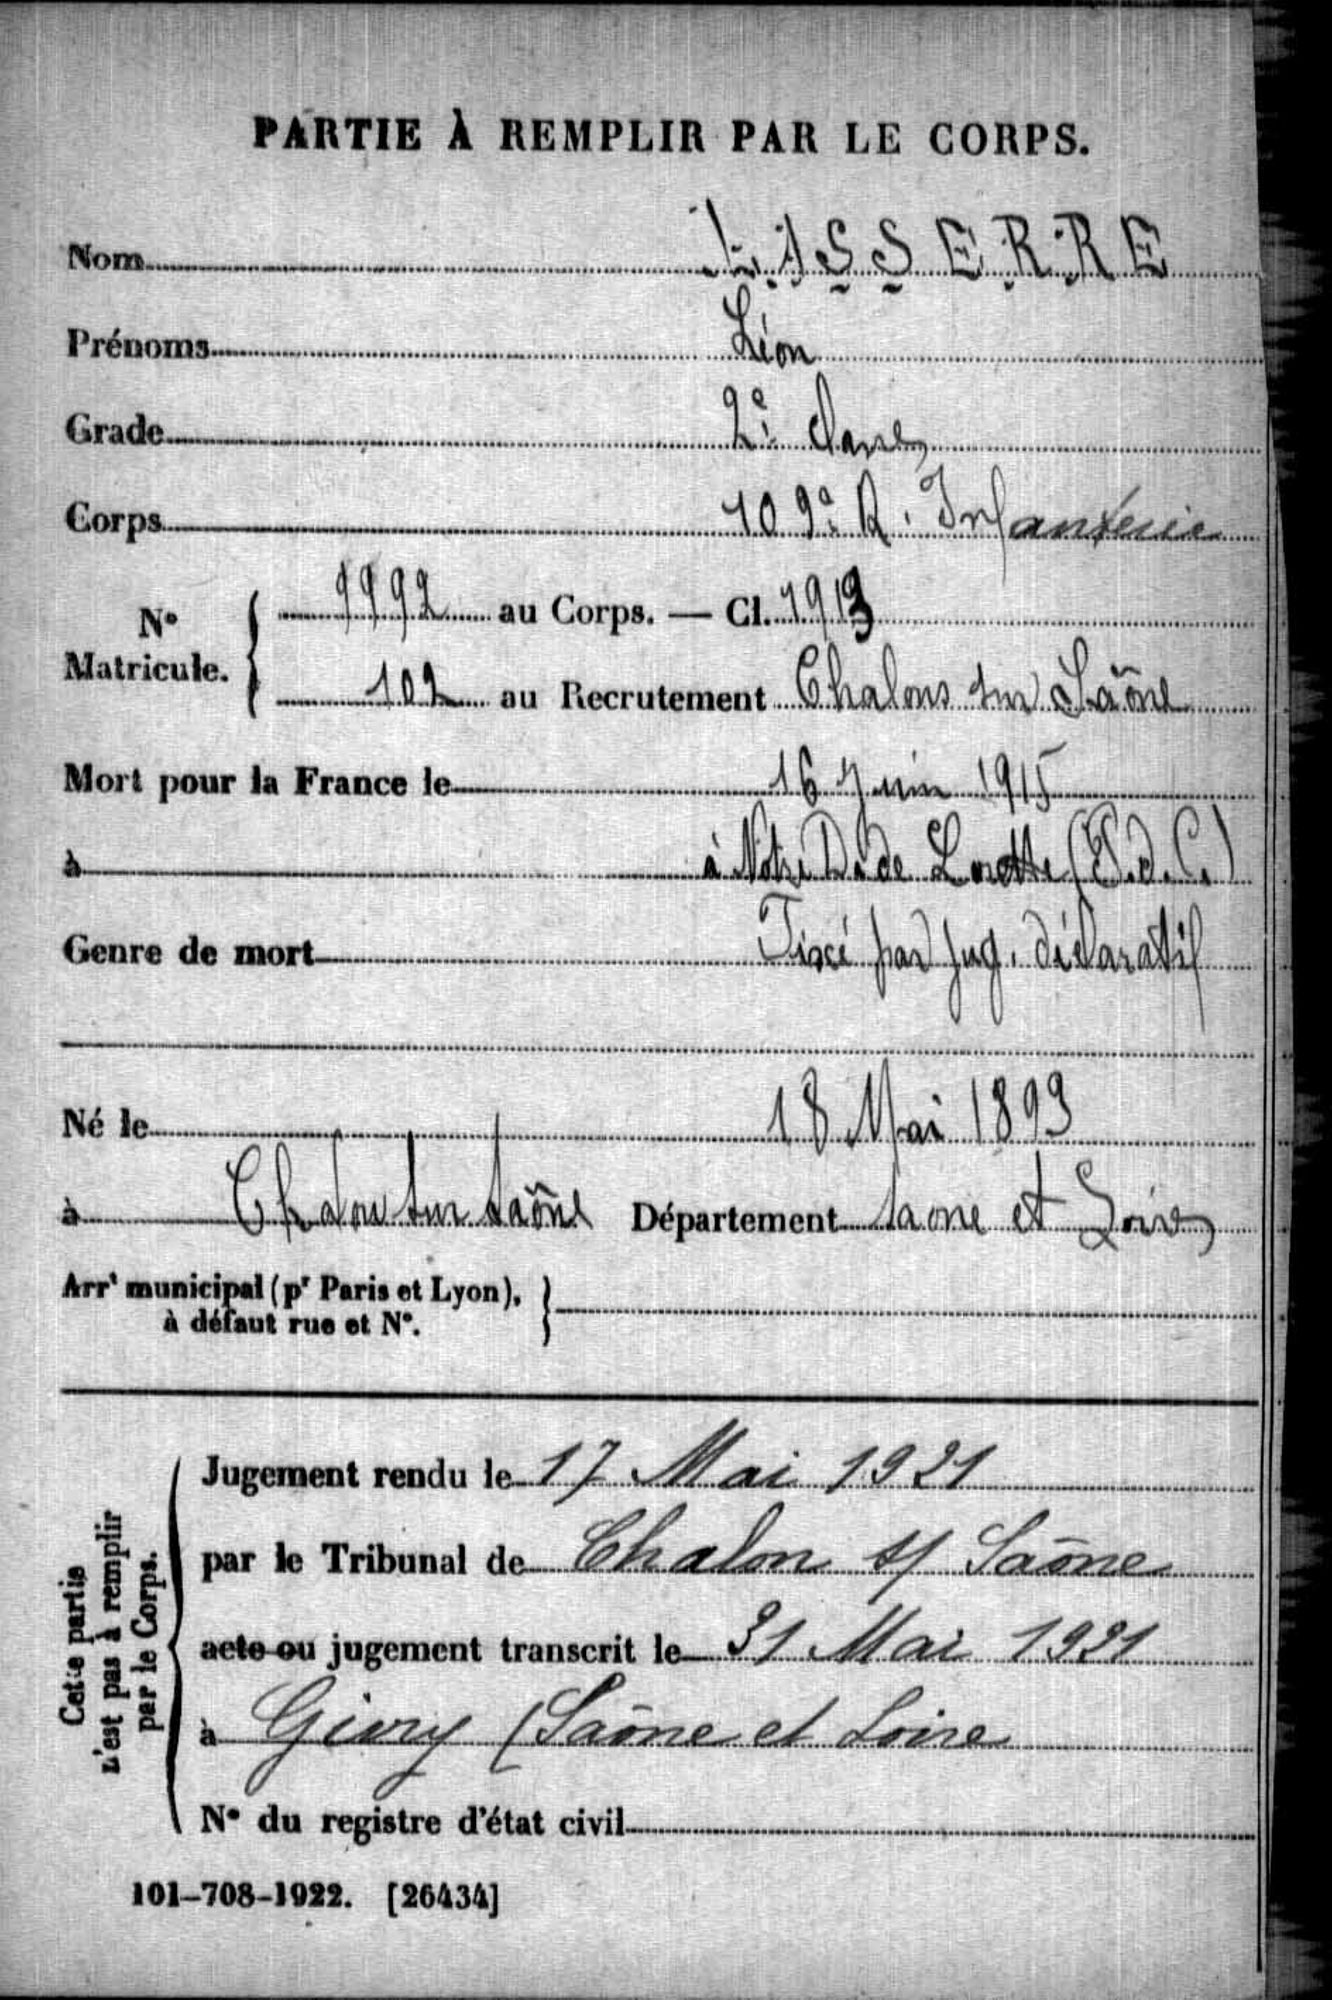 PARTIE À REMPLIR PAR LE CORPS.
Nom LASSERRE
Prénoms Léon
Grade 2e classe
Corps 109e R. Infanterie
No Matricule. 9992 au Corps. — Cl. 1913
102 au Recrutement Chalons sur Saône
Mort pour la France le 16 Juin 1915
à à Notre D. de Lorette (P.d.C.)
Genre de mort Fixé par jug. déclaratif
Né le 18 Mai 1893
à Chalon sur Saône Département Saone et Loire
Arrt municipal (pr Paris et Lyon),
à défaut rue et No.
Cette partie
n'est pas à remplir
par le Corps.
Jugement rendu le 17 Mai 1921
par le Tribunal de Chalon s/ Saône
acte ou jugement transcrit le 31 Mai 1921
à Givry (Saône et Loire
No du registre d'état civil
101-708-1922. [26434]